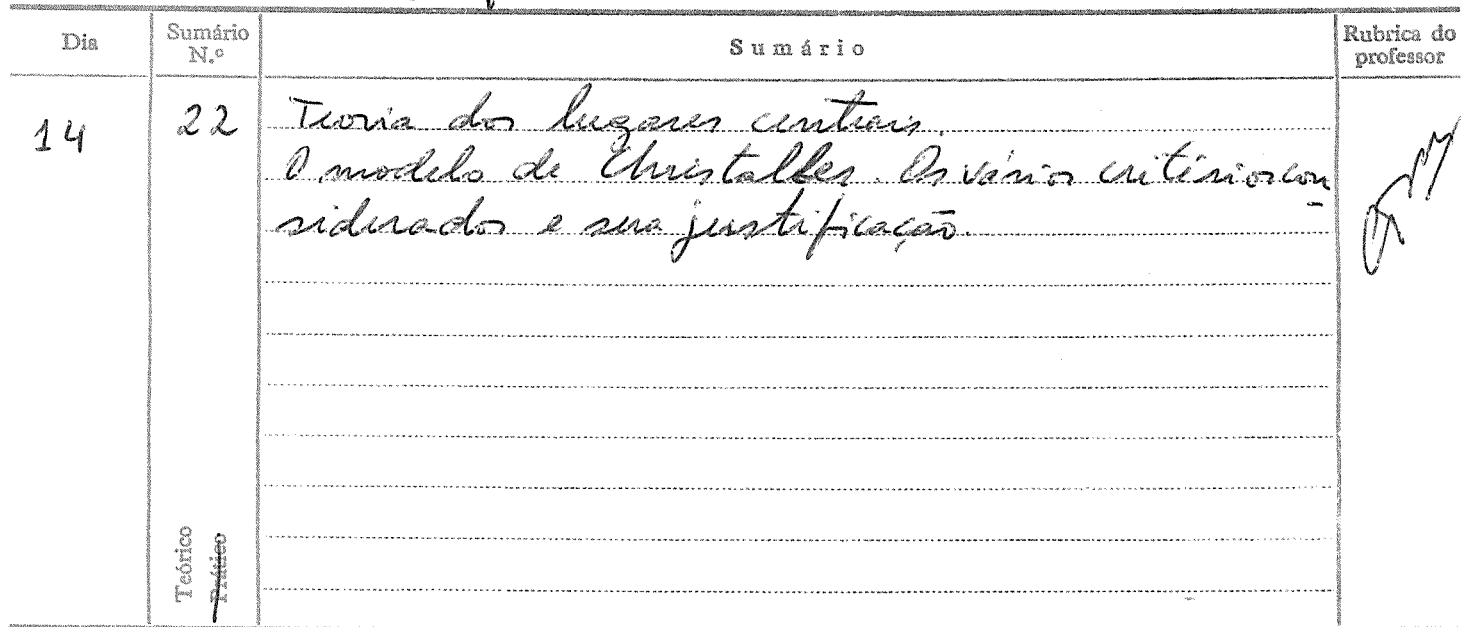 Dia Sumário N.º Sumário Rubrica do professor
14 22 Teoria dos lugares centrais.
O modelo de Christaller. Os vários critérios con
siderados e sua justificação.
Teórico
Prático